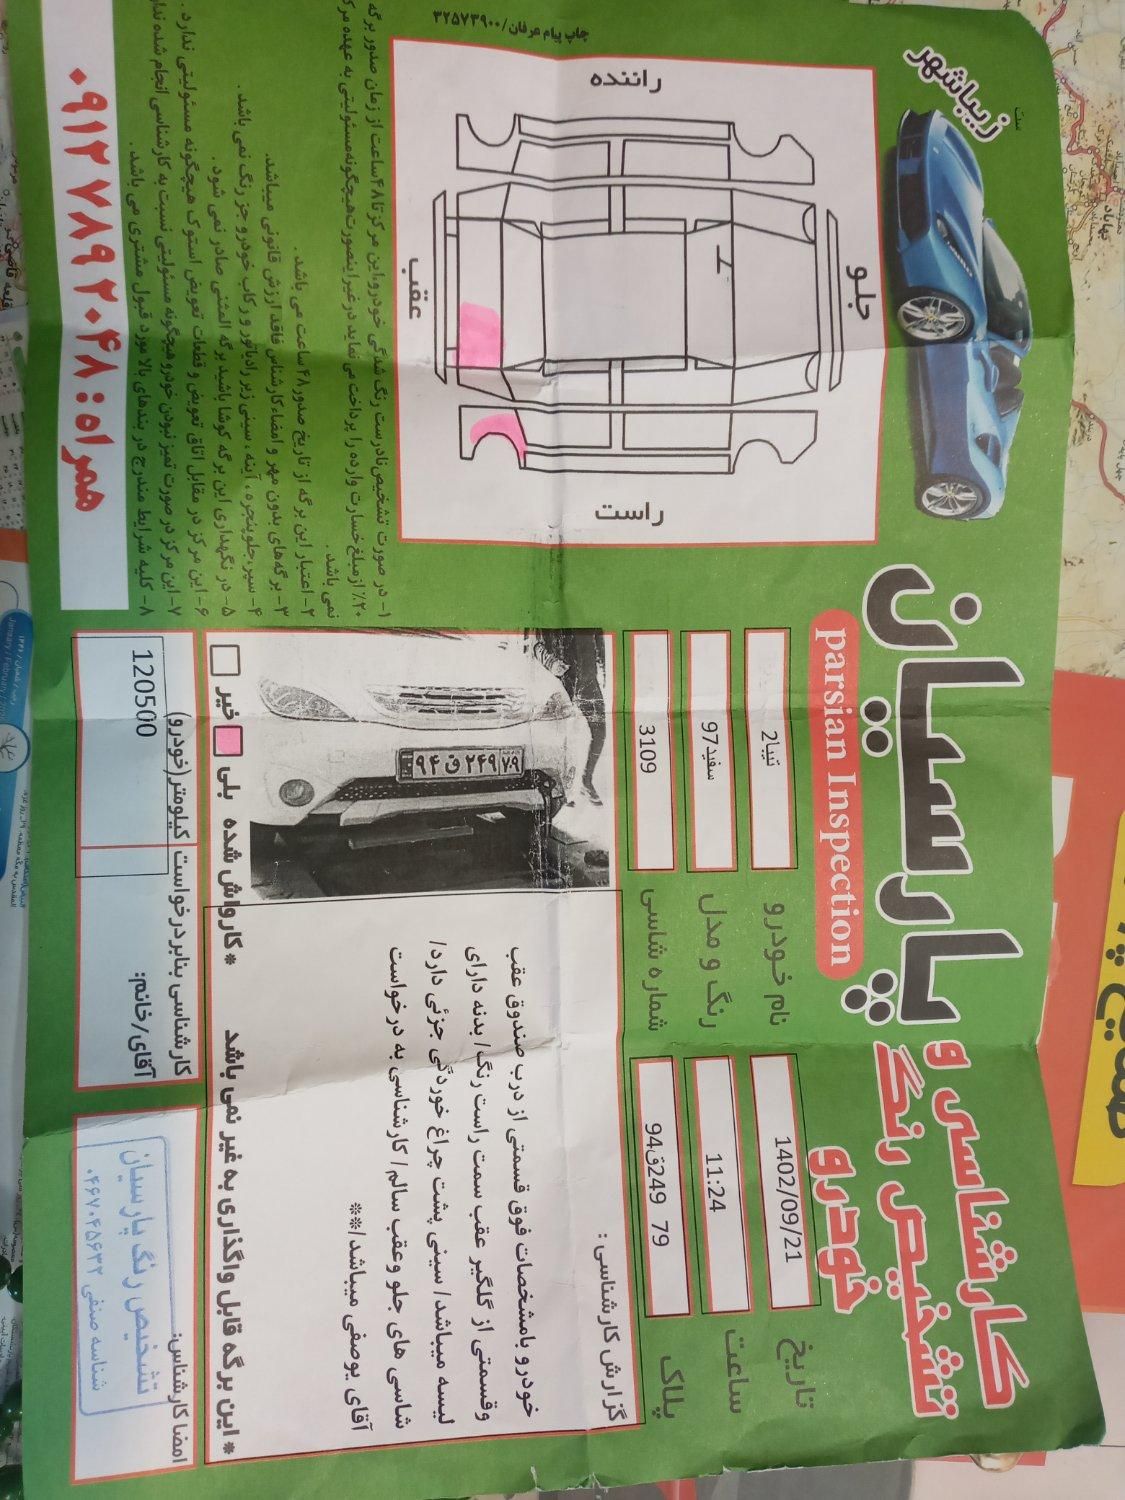 کارشناسی و
تشخیص رنگ
خودرو
پارسیان
parsian Inspection
زیباشهر
تاریخ
1402/09/21
ساعت
11:24
پلاک
94ق249 79
نام خودرو
تیبا2
رنگ و مدل
سفید97
شماره شاسی
3109
گزارش کارشناسی :
خودرو بامشخصات فوق قسمتی از درب صندوق عقب
وقسمتی از گلگیر عقب سمت راست رنگ/ بدنه دارای
لیسه میباشد/ سینی پشت چراغ خوردگی جزئی دارد/
شاسی های جلو وعقب سالم/ کارشناسی به درخواست
آقای یوصفی میباشد/**
۹۴ق۲۴۹ ۷۹
* این برگه قابل واگذاری به غیر نمی باشد
* کارواش شده بلی خیر
امضا کارشناس:
تشخیص رنگ پارسیان
شناسه صنفی ۰۴۶۷۰۴۵۶۳۲
کارشناسی بنابر درخواست
آقای/خانم:
کیلومتر(خودرو)
120500
راننده
جلو
عقب
راست
۱- در صورت تشخیص نادرست رنگ شدگی خودرو،این مرکز تا ۴۸ ساعت از زمان صدور برگه
۲۰٪ از مبلغ خسارت وارده را پرداخت می نماید در غیر اینصورت هیچگونه مسئولیتی به عهده
نمی باشد .
۲- اعتبار این برگه از تاریخ صدور ۴۸ ساعت می باشد .
۳- برگه های بدون مهر و امضاء کارشناس فاقد ارزش قانونی میباشد.
۴- سپر،جلوپنجره ، آینه ، سینی زیر رادیاتور و رکاب خودرو جز رنگ نمی باشد .
۵- در نگهداری این برگه کوشا باشید برگه المثنی صادر نمی شود .
۶- این مرکز در مقابل اتاق تعویض و قطعات تعویض استوک هیچگونه مسئولیتی ندارد .
۷- این مرکز در صورت تمیز نبودن خودرو هیچگونه مسئولیتی نسبت به کارشناسی انجام شده
۸- کلیه شرایط مندرج در بندهای بالا مورد قبول مشتری می باشد .
همراه : ۰۹۱۲ ۷۸۹ ۲۰۴۸
چاپ پیام عرفان/۳۲۵۷۳۹۰۰